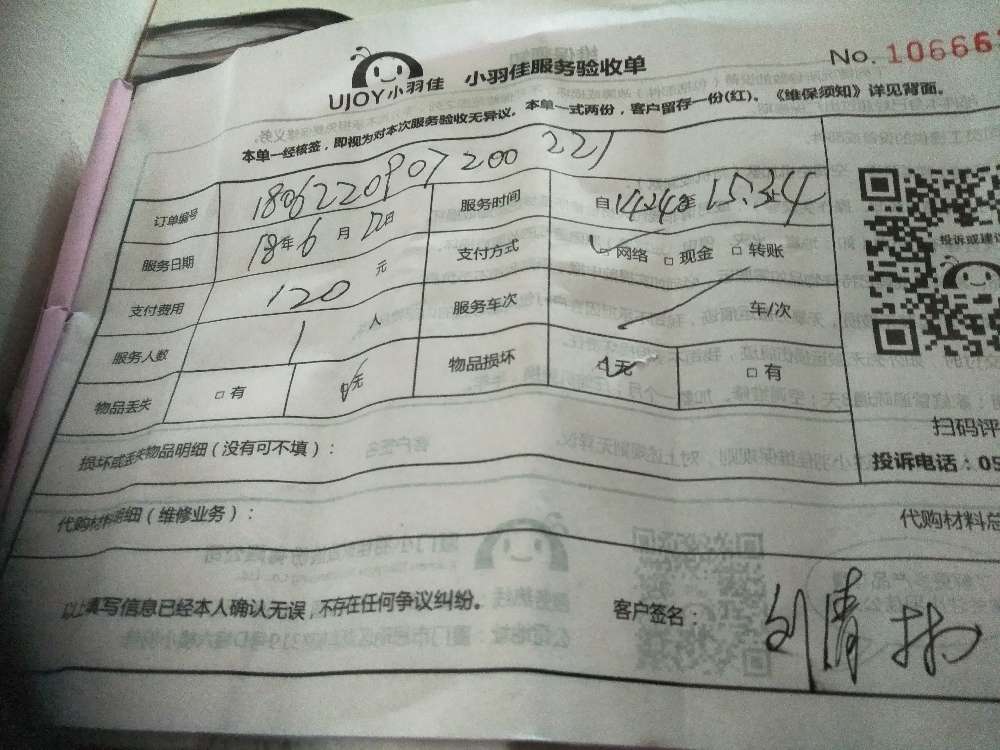 UJOY小羽佳 小羽佳服务验收单 No. 10666
本单一经核签，即视为对本次服务验收无异议。本单一式两份，客户留存一份(红)。《维保须知》详见背面。
订单编号 1806220907200221
服务日期 18年6月22日 服务时间 自14:24至15:34
支付费用 120元 支付方式 □网络 □现金 □转账
服务人数 1人 服务车次 车/次
物品丢失 □有 无 物品损坏 无 □有
投诉或建议
扫码评
损坏或丢失物品明细（没有可不填）：
投诉电话：05
代购材料明细（维修业务）：
代购材料总
以上填写信息已经本人确认无误，不存在任何争议纠纷。 客户签名：